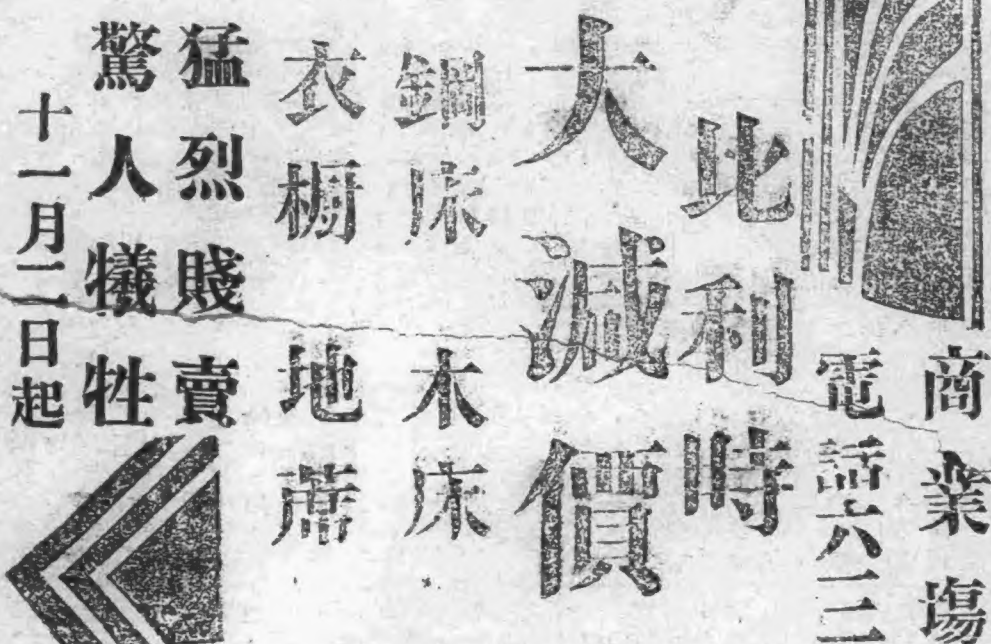 商業場
電話六二二
比利時
大減價
鋼床 木床
衣櫥 地蓆
猛烈賤賣
驚人犧牲
十一月二日起